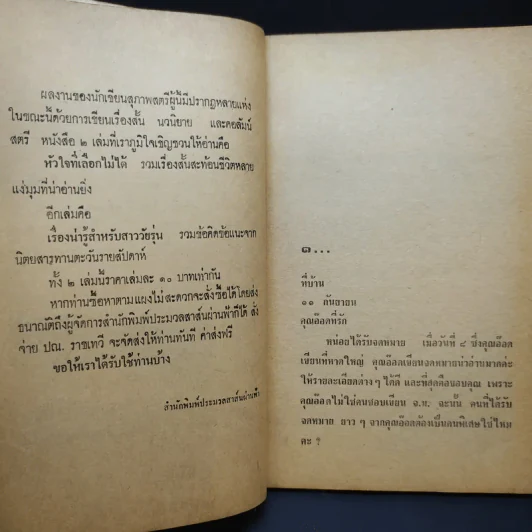 ผลงานของนักเขียนสุภาพสตรีผู้นี้มีปรากฏหลายแห่ง
ในขณะนี้ด้วยการเขียนเรื่องสั้น นวนิยาย และคอลัมน์
สตรี หนังสือ ๒ เล่มที่เราภูมิใจเชิญชวนให้อ่านคือ
หัวใจที่เลือกไม่ได้ รวมเรื่องสั้นสะท้อนชีวิตหลาย
แง่มุมที่น่าอ่านยิ่ง
อีกเล่มคือ
เรื่องน่ารู้สำหรับสาววัยรุ่น รวมข้อคิดข้อแนะจาก
นิตยสารทานตะวันรายสัปดาห์
ทั้ง ๒ เล่มนี้ราคาเล่มละ ๑๐ บาทเท่ากัน
หากท่านซื้อหาตามแผงไม่สะดวกจะสั่งซื้อได้โดยส่ง
ธนาณัติถึงผู้จัดการสำนักพิมพ์ประมวลสาส์นผ่านฟ้าก็ได้ สั่ง
จ่าย ปณ. ราชเทวี จะจัดส่งให้ท่านทันที ค่าส่งฟรี
ขอให้เราได้รับใช้ท่านบ้าง
สำนักพิมพ์ประมวลสาส์นผ่านฟ้า
๑...
ที่บ้าน
๑๑ กันยายน
คุณอ๊อดที่รัก
หน่อยได้รับจดหมาย เมื่อวันที่ ๘ ซึ่งคุณอ๊อด
เขียนที่หาดใหญ่ คุณอ๊อดเขียนจดหมายน่าอ่านมากค่ะ
ให้รายละเอียดต่าง ๆ ได้ดี และที่สุดต้องขอบคุณ เพราะ
คุณอ๊อดไม่ใช่คนชอบเขียน จ.ม. ฉะนั้น คนที่ได้รับ
จดหมาย ยาว ๆ จากคุณอ๊อดต้องเป็นคนพิเศษใช่ไหม
คะ ?